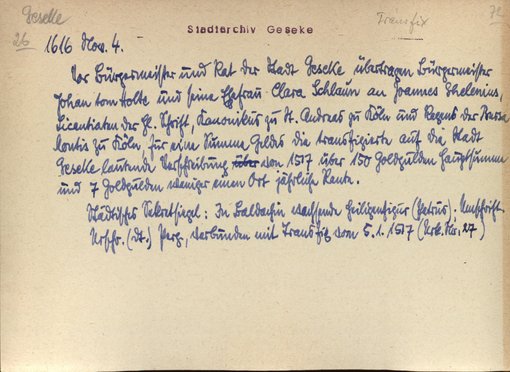 Geseke
26
Stadtarchiv Geseke
Transfix
72
1616 Nov. 4.
Vor Bürgermeister und Rat der Stadt Geseke übertragen Bürgermeister
Johan tom Holte und seine Ehefrau Clara Schlaun an Joannes Thelenius,
Licentiaten der hl. Schrift, Kanonikus zu St. Andreas zu Köln und Regens der Bursa
lontis zu Köln, für eine Summe Geldes die transfigierte auf die Stadt
Geseke lautende Verschreibung über von 1517 über 150 Goldgulden Hauptsumme
und 7 Goldgulden weniger einen Ort jährliche Rente.
Städtisches Sekretsiegel: In Baldachin wachsende Heiligenfigur (Petrus); Umschrift.
Urschr. (dt.) Perg., verbunden mit Transfix vom 5.1.1517 (Urk. Nr. 27)